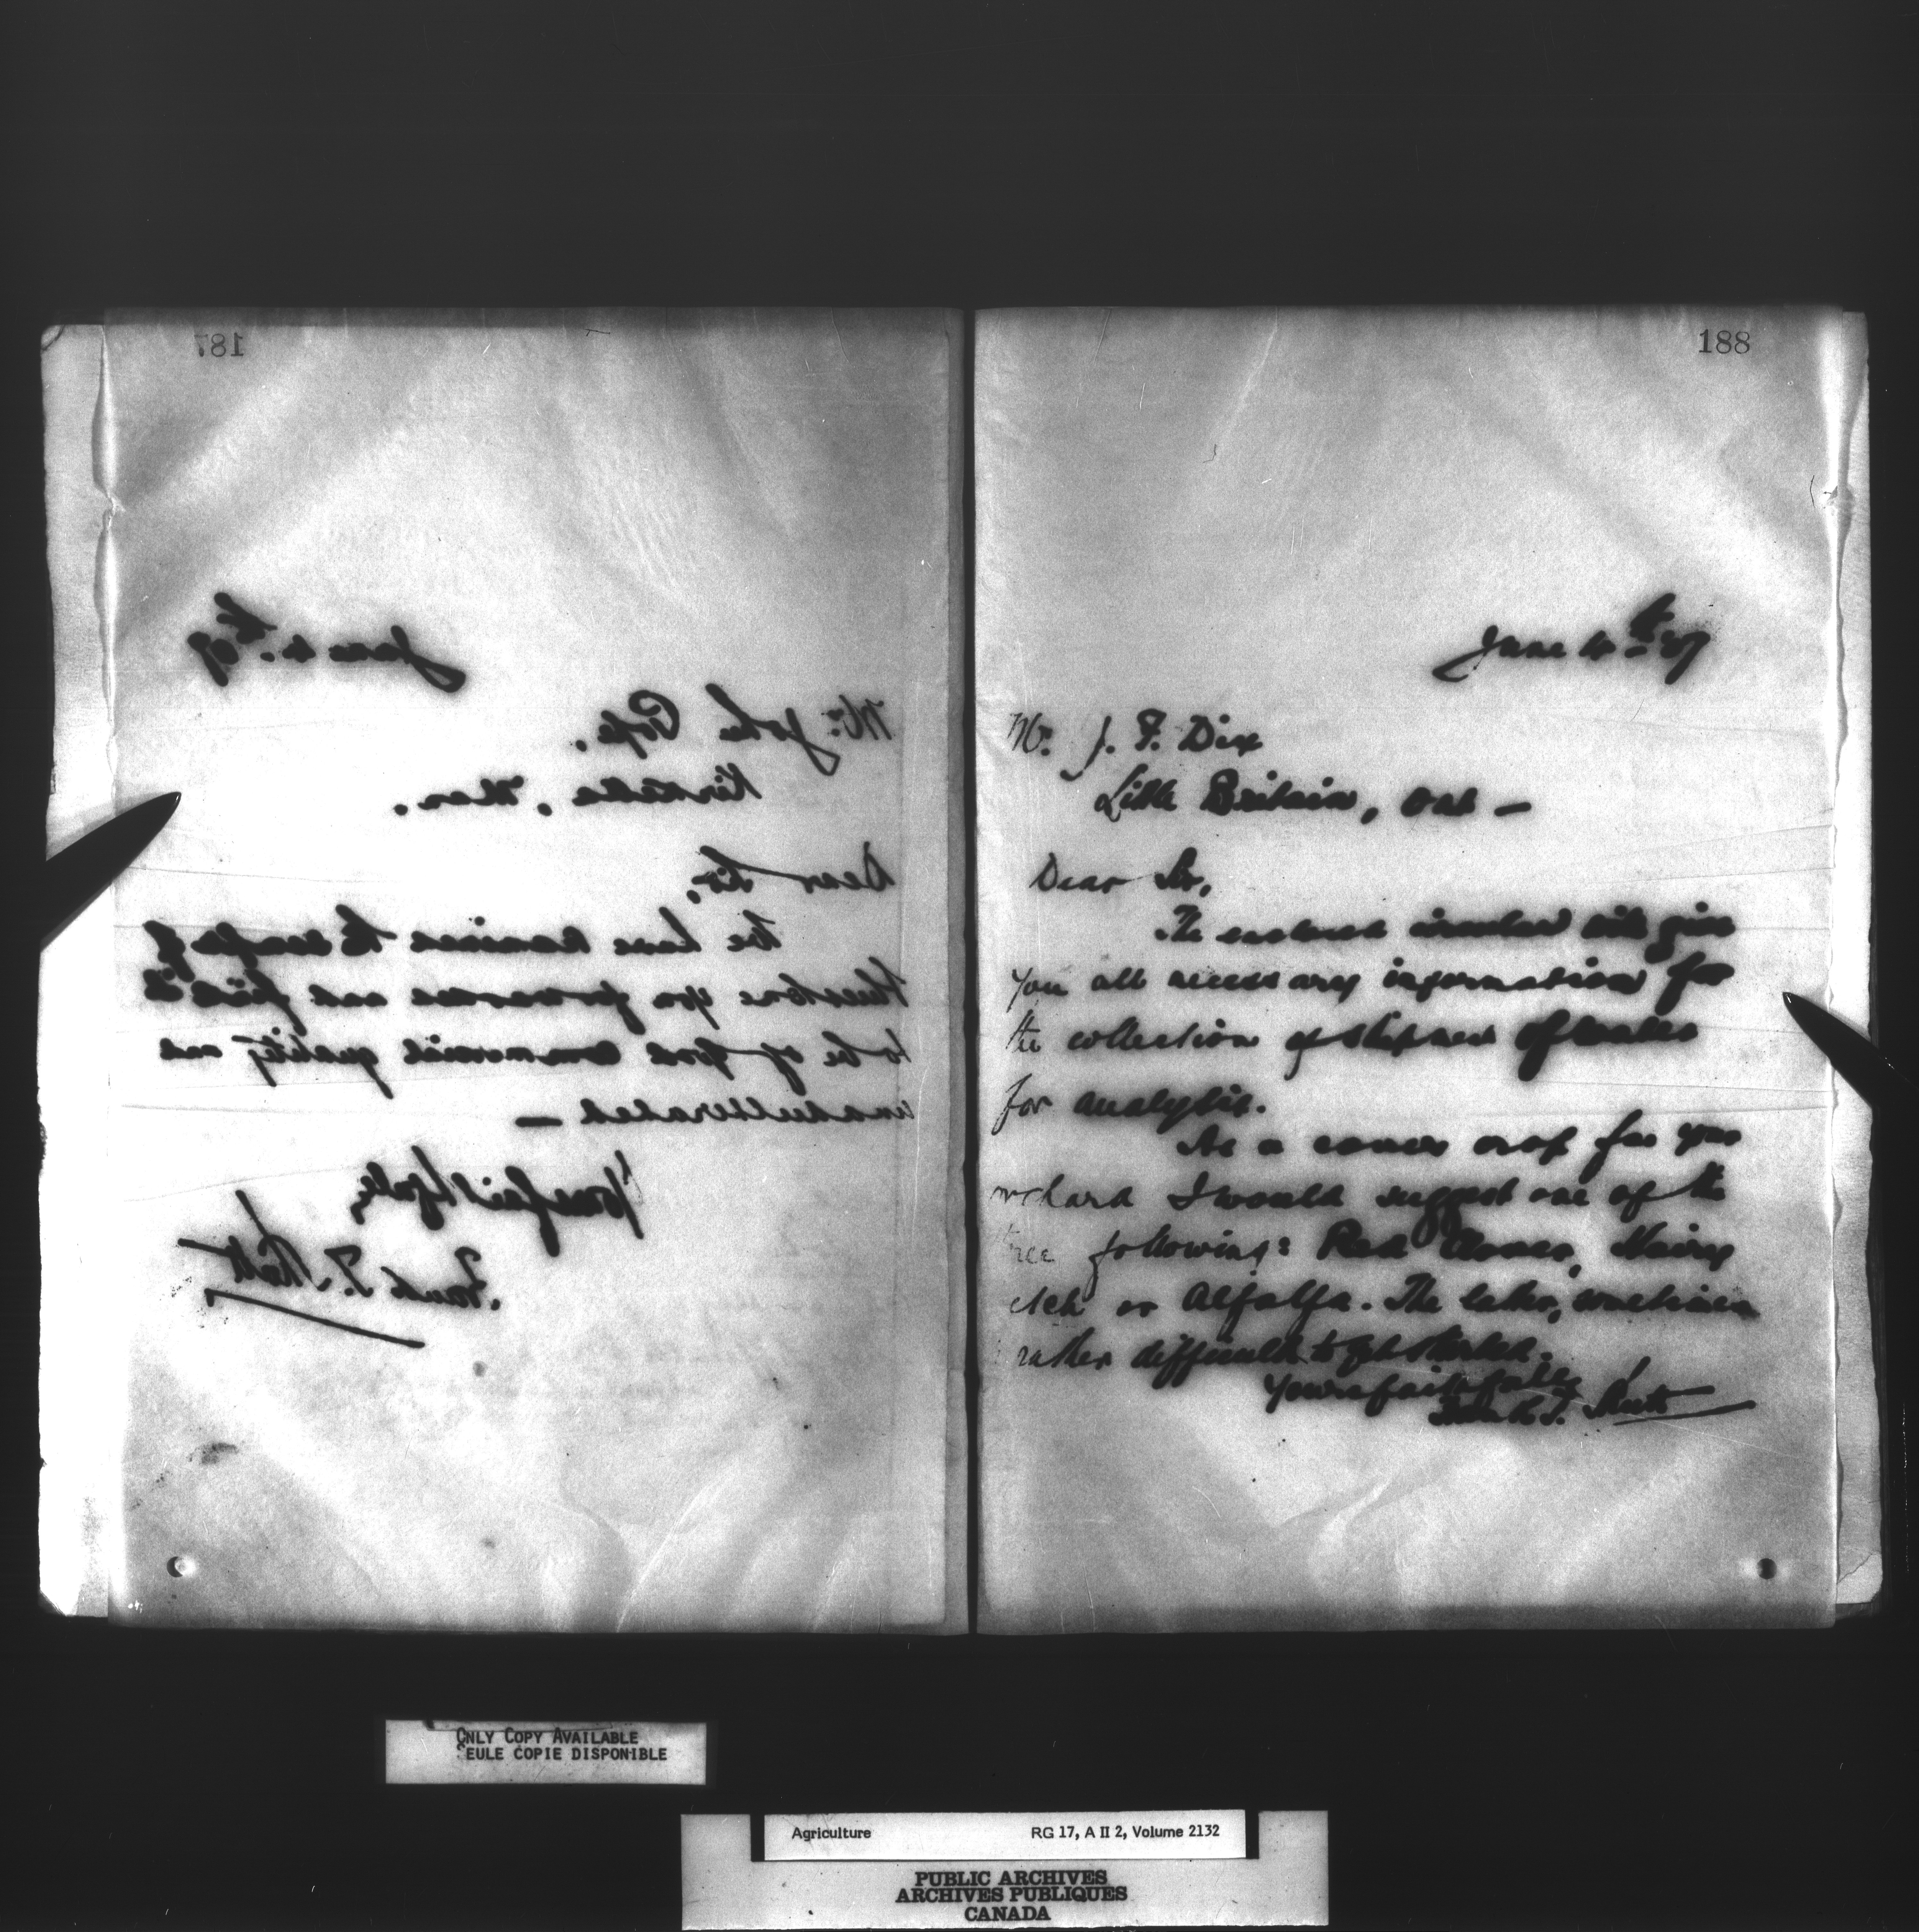 187
June 4th 07
Mr. John Pope,
Kirkella, Man.
Dear Sir,
We have examined the sample of
you forwarded and find it
to be of good commercial quality and
unadulterated —
Yours faithfully,
Frank T. Shutt
188
June 4th 07
Mr. J. F. Dix
Little Britain, Ont —
Dear Sir,
The enclosed circular will give
you all necessary information for
the collection & shipment of water
for analysis.
As a cover crop for your
orchard I would suggest one of the
three following: Red Clover, Hairy
etch or Alfalfa. The latter, sometimes
rather difficult to get started.
Yours faithfully
Frank T. Shutt
ONLY COPY AVAILABLE
SEULE COPIE DISPONIBLE
Agriculture RG 17, A II 2, Volume 2132
PUBLIC ARCHIVES
ARCHIVES PUBLIQUES
CANADA